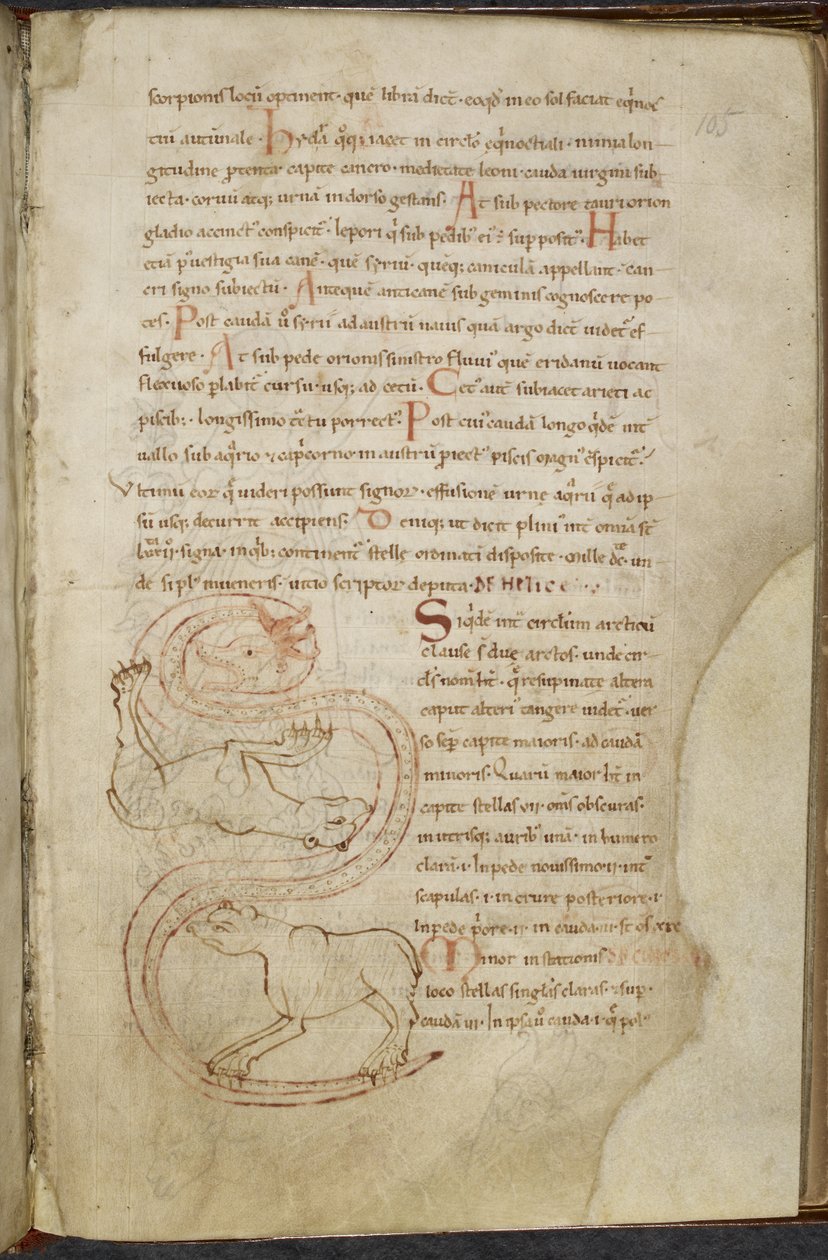 scorpionis locū optinent· quē librā dict̄· eo qđ in eo sol faciat eq̇noc
105
tiū autūnale· hydrā q̊q; iacet in circło eq̇noctiali· nimia lon
gitudine p̄tenta· capite cancro· medietate leoni· cauda uirgini sub
iecta· coruū atq; urnā in dorso gestans· At sub pectore tauri orion
gladio accinct᾿ conspicit᾿· lepori q̇ sub pedib᾿ ei᾿ ē sup̄posit᾿· Habet
etiā p᾿ uestigia sua canē· quē syriū· quēq; caniculā appellant· can
cri signo subiectū· Antequē anticanē sub geminis cognoscere po
tes· Post caudā u̇ syrii ad austrū nauis quā argo dict̄ uidet᾿ ef
fulgere· At sub pede orionis sinistro fluui᾿ quē eridanū uocant
flexuoso p̄labit᾿ cursu· usq; ad cetū· Cet᾿ aut̄ subiacet arieti ac
piscib;· longissimo tractu porrect᾿· Post cui᾿ caudā longo q̇dē int᾿
uallo sub aq̇rio & cap̄corno in austrū p̄iect᾿ piscis magn᾿ c̄spicit᾿·
Vltimū eor q̄ uideri possunt signor· effusionē urnę aq̇rii q̄ ad ip
sū usq; decurrit accipiens· Deniq; ut dicit plini᾿ int᾿ om̄ia st̄
lxxii· signa· in q̇b; continent᾿ stelle ordinati disposite· mille dc̄· un
de si pl᾿ inueneris· uitio scriptor deputa· DE HELICE
Siq̇dē int᾿ circłum arcticū
clause s̄ due arctos· unde cir
cl᾿s nom̄ ht̄· q̄ resupinate altera
caput alteri᾿ tangere uidet᾿· uer
so sēp capite maioris· ad caudā
minoris· Quarū maior ht̄ in
capite stellas vii· om̄s obscuras·
in utrisq; aurib᾿ unā· in humero
clarā· i· In pede nouissimo· ii· int᾿
scapulas· i· in crure posteriore· i·
In pede p̄ore· ii· in cauda· iii· st̄ om̄s xxi
Minor in stationis
loco stellas singl᾿as claras· & sup᾿
caudā iii· In ipsa u̇ cauda· i· q̄ pol᾿